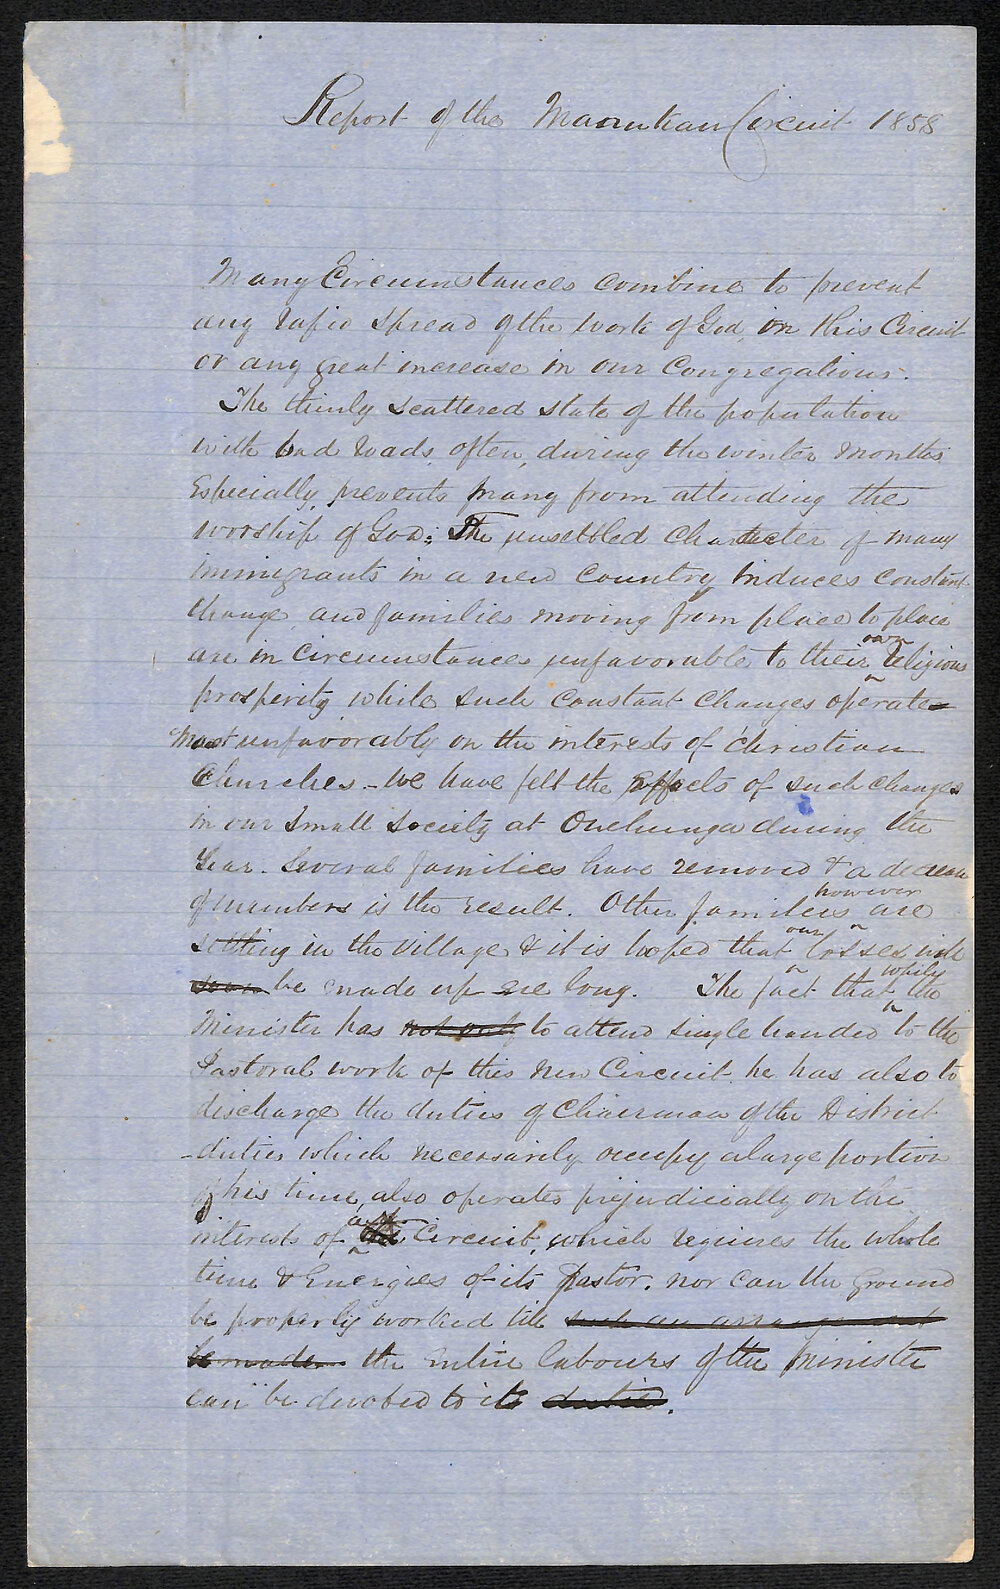 Report of the Manukau Circuit 1858
Many Circumstances combine to prevent
any rapid spread of the work of God, in this Circuit
or any great increase in our Congregations.
The thinly scattered state of the population
with bad roads, often, during the winter months
Especially, prevents many from attending the
worship of God; The unsettled character of many
immigrants in a new Country induces constant
change, and families moving from place to place
are in Circumstances unfavorable to their own religious
prosperity while such constant changes operate
most unfavorably on the interests of Christian
Churches. - We have felt the effects of such changes
in our small Society at Onehunga during the
Year. Several families have removed & a decrease
of members is the result. Other families however are
settling in the village & it is hoped that our losses will
soon be made up ere long. The fact that whilst the
Minister has not only to attend single handed to the
Pastoral work of this new Circuit he has also to
discharge the duties of Chairman of the District
- duties which necessarily occupy a large portion
of his time, also operates prejudicially on the
interests of a Circuit, which requires the whole
time & Energies of its Pastor. nor can the Ground
be properly worked till such an arrangement
be made the entire labours of the Minister
can be devoted to it duties.